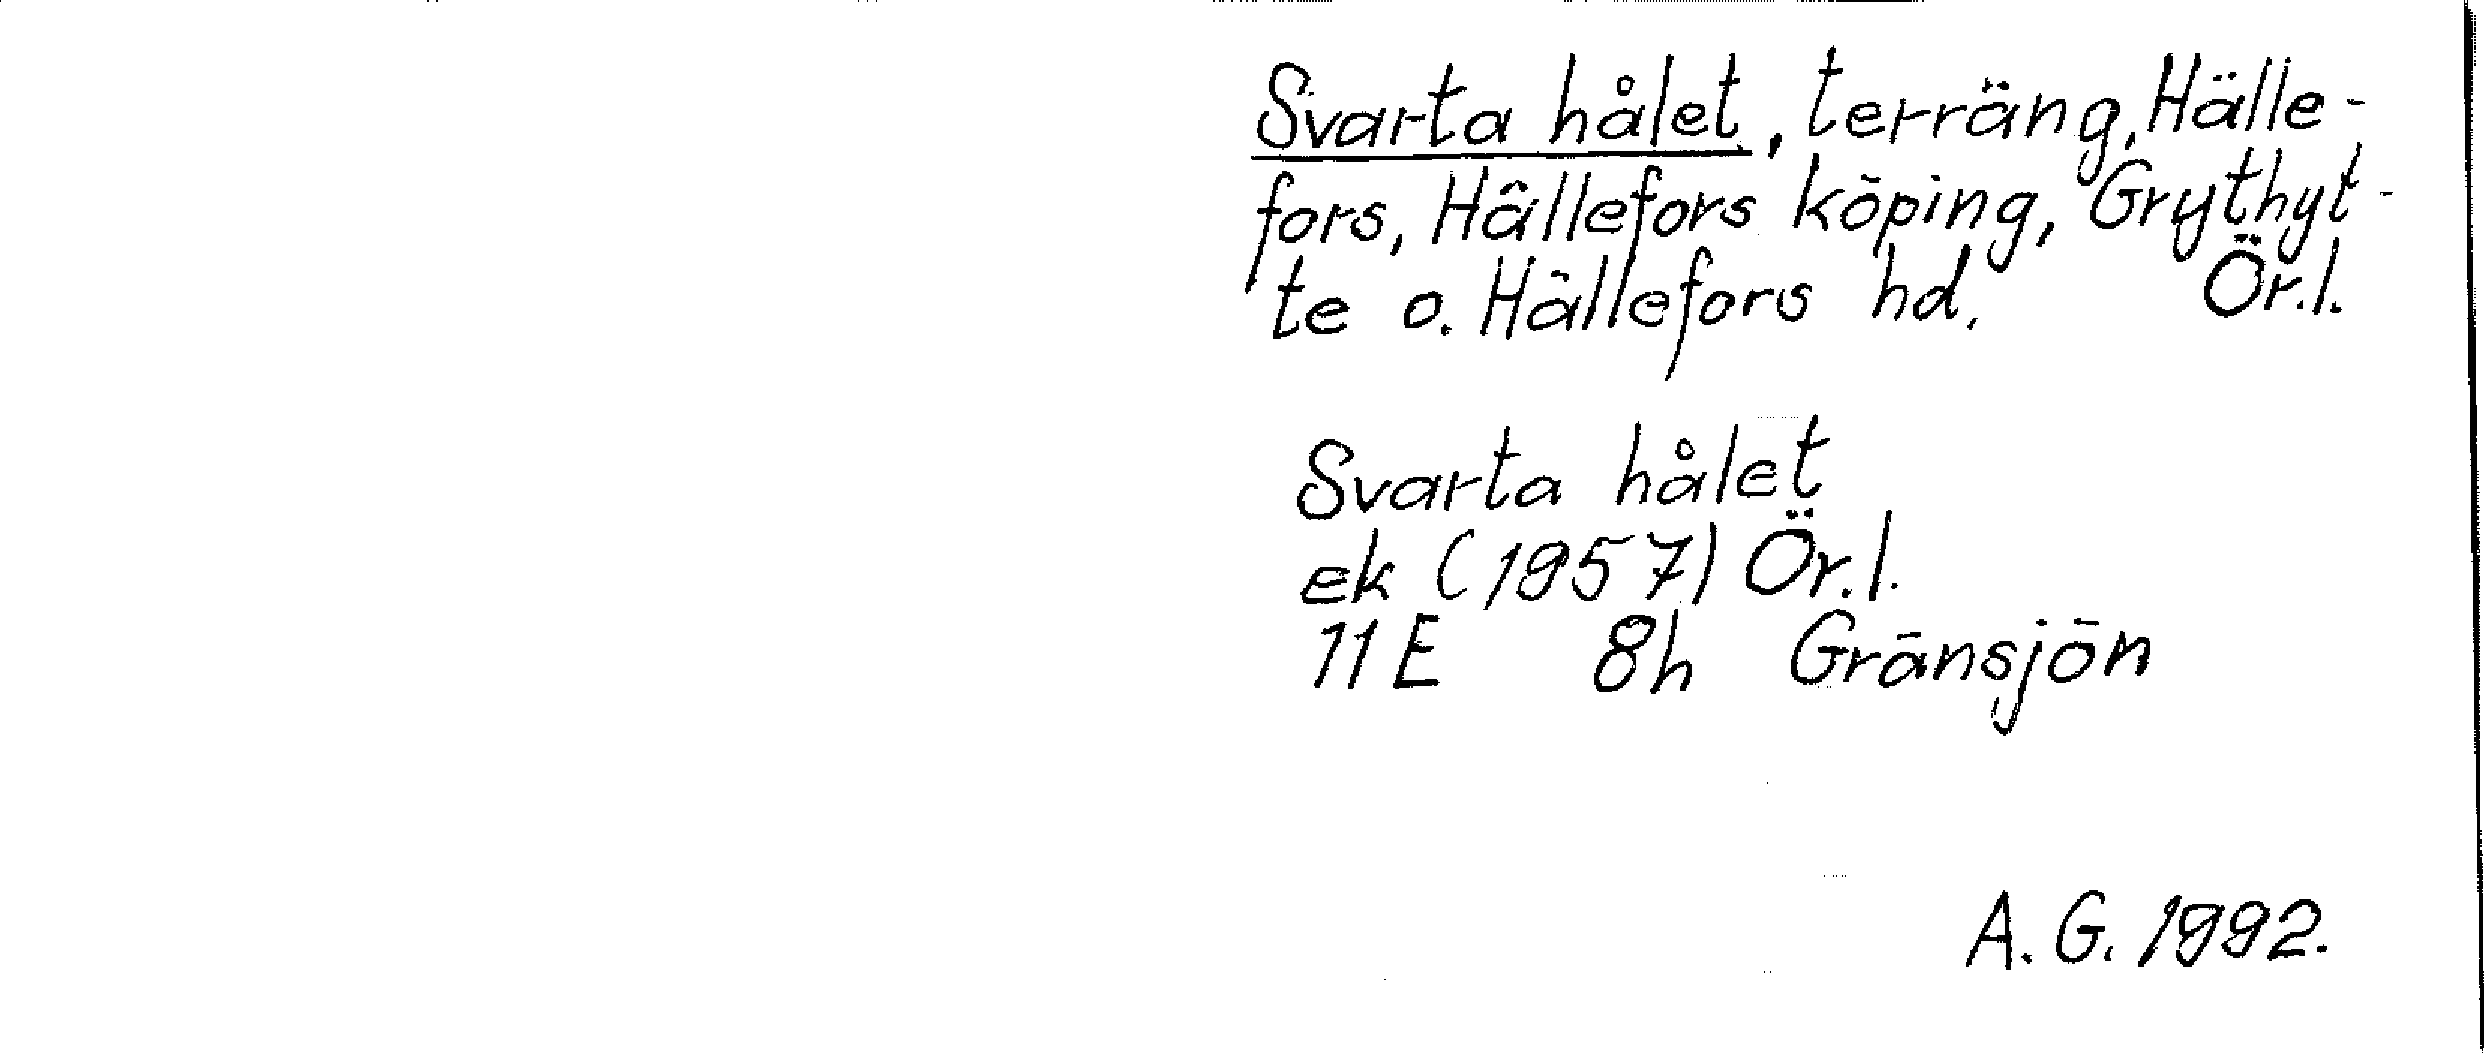 Svarta hålet, terräng, Hälle-
fors, Hällefors köping, Grythyt-
te o. Hällefors hd. Ör.l.
Svarta hålet
ek (1957) Ör.l.
11E 8h Gränsjön
A. G. 1992.